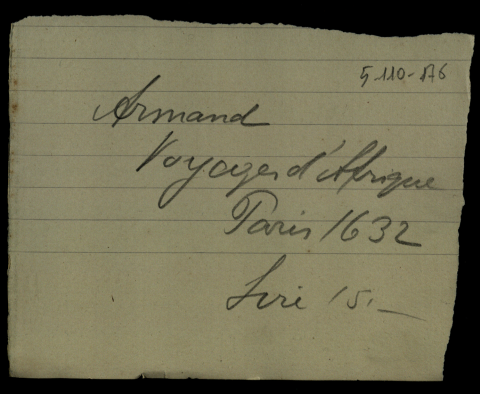 5-110-176
Armand
Voyages d'Afrique
Paris 1632
Lire 15.—